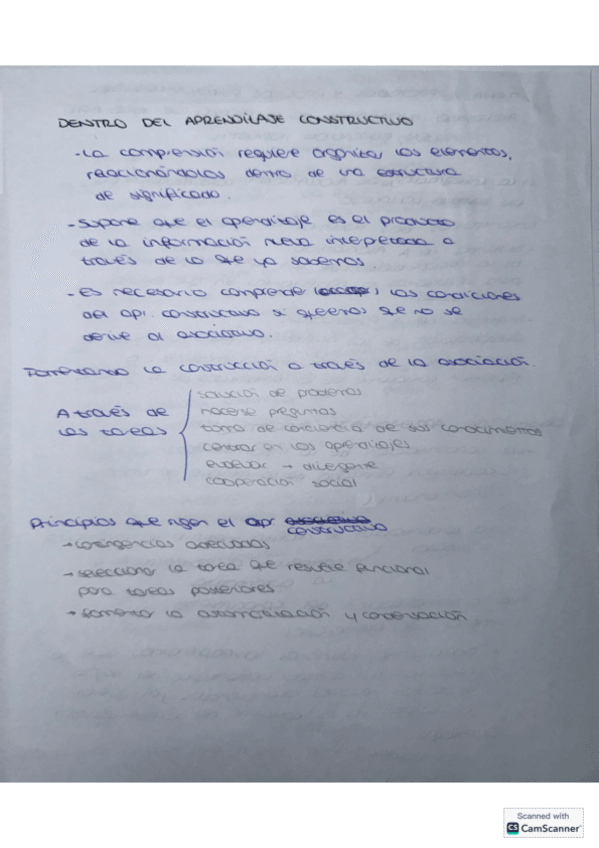 DENTRO DEL APRENDIZAJE CONSTRUCTIVO
-La comprensión requiere organizar los elementos,
relacionándolos dentro de una estructura
de significado.
-Supone que el aprendizaje es el producto
de la información nueva interpetada a
través de lo que ya sabemos
-Es necesario comprender los condiciones
del api. constructivo si queremos que no se
derive al asociativo.
Fomentando la construcción a través de la asociación.
A través de
las tareas
solución de problemas
hacerse preguntas
toma de conciencia de sus conocimientos
centrar en los aprendizajes
evaluar → divergente
cooperación social
Principios que rigen el apr asociativo
constructivo
→contingencias adecuadas
→seleccionar la tarea que resulte funcional
para tareas posteriores
→fomentar la automatización y condensación
Scanned with
CS CamScanner